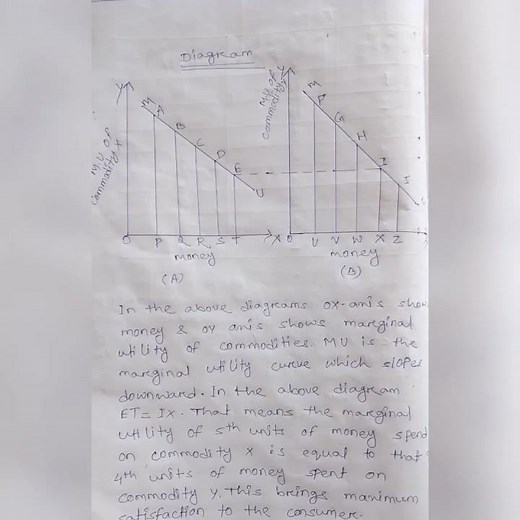 Diagram
Y
M.U of
commodity X
M
A
B
C
D
E
U
O
P
Q
R
S
T
X
money
(A)
M.U of
commodity Y
M
F
G
H
I
O
U
V
W
X
Z
money
(B)
In the above diagrams OX-axis show
money & OY axis shows marginal
utility of commodities. MU is the
marginal utility curve which slopes
downward. In the above diagram
ET= IX. That means the marginal
utility of 5th units of money spend
on commodity X is equal to that
4th units of money spent on
commodity Y. This brings maximum
satisfaction to the consumer.